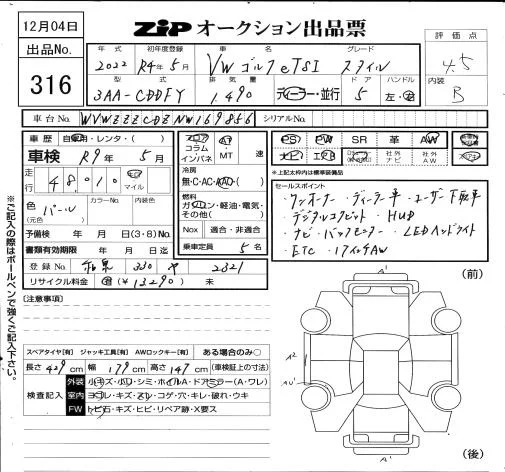 12月04日
ZIP オークション出品票
出品No.
316
評価点
4.5
内装
B
年式
2022
初年度登録
R4年5月
車名
VW ゴルフ eTSI
グレード
スタイル
型式
3AA-CDDFY
排気量
1,490
ディーラー・並行
ドア
5
ハンドル
左・右
車台No.
WVWZZZCDZNW169856
シリアルNo.
車歴 自家用・レンタ・( )
車検 R9年5月
走行 48,010 Km マイル
色(元色) パール
カラーNo.
内装色
予備検 年 月 日(3・8)No.
書類有効期限 年 月 日迄
登録No. 和泉 330 2321
リサイクル料金 済 (¥13290) 未
シフト
コラム
インパネ
AT
MT
速
冷房
無・C・AC・AAC・( )
燃料
ガソリン・軽油・電気・その他( )
Nox 適合・非適合
乗車定員 5名
PS
PW
SR
革
AW
ナビ
エアB
社外ナビ
社外AW
*上記太枠内は標準装備品
セールスポイント
・ワンオーナー・ディーラー車・ユーザー下取車
・デジタルコクピット・HUD
・ナビ・バックモニター・LEDヘッドライト
・ETC・17インチAW
(注意事項)
※ご記入の際はボールペンで強くご記入下さい。
スペアタイヤ[有] ジャッキ工具[有] AWロックキー[有] ある場合のみ○
長さ429cm 幅179cm 高さ147cm (車検証上の寸法)
検査記入
外装 小キズ・小リ・シミ・ホイルA・ドアミラー(A・ワレ)
室内 ヨゴレ・キズ・スレ・コゲ・穴・キレ・破れ・ウキ
FW トビ石・キズ・ヒビ・リペア跡・X要ス
(前)
A1
A2
AU1
A1
(後)